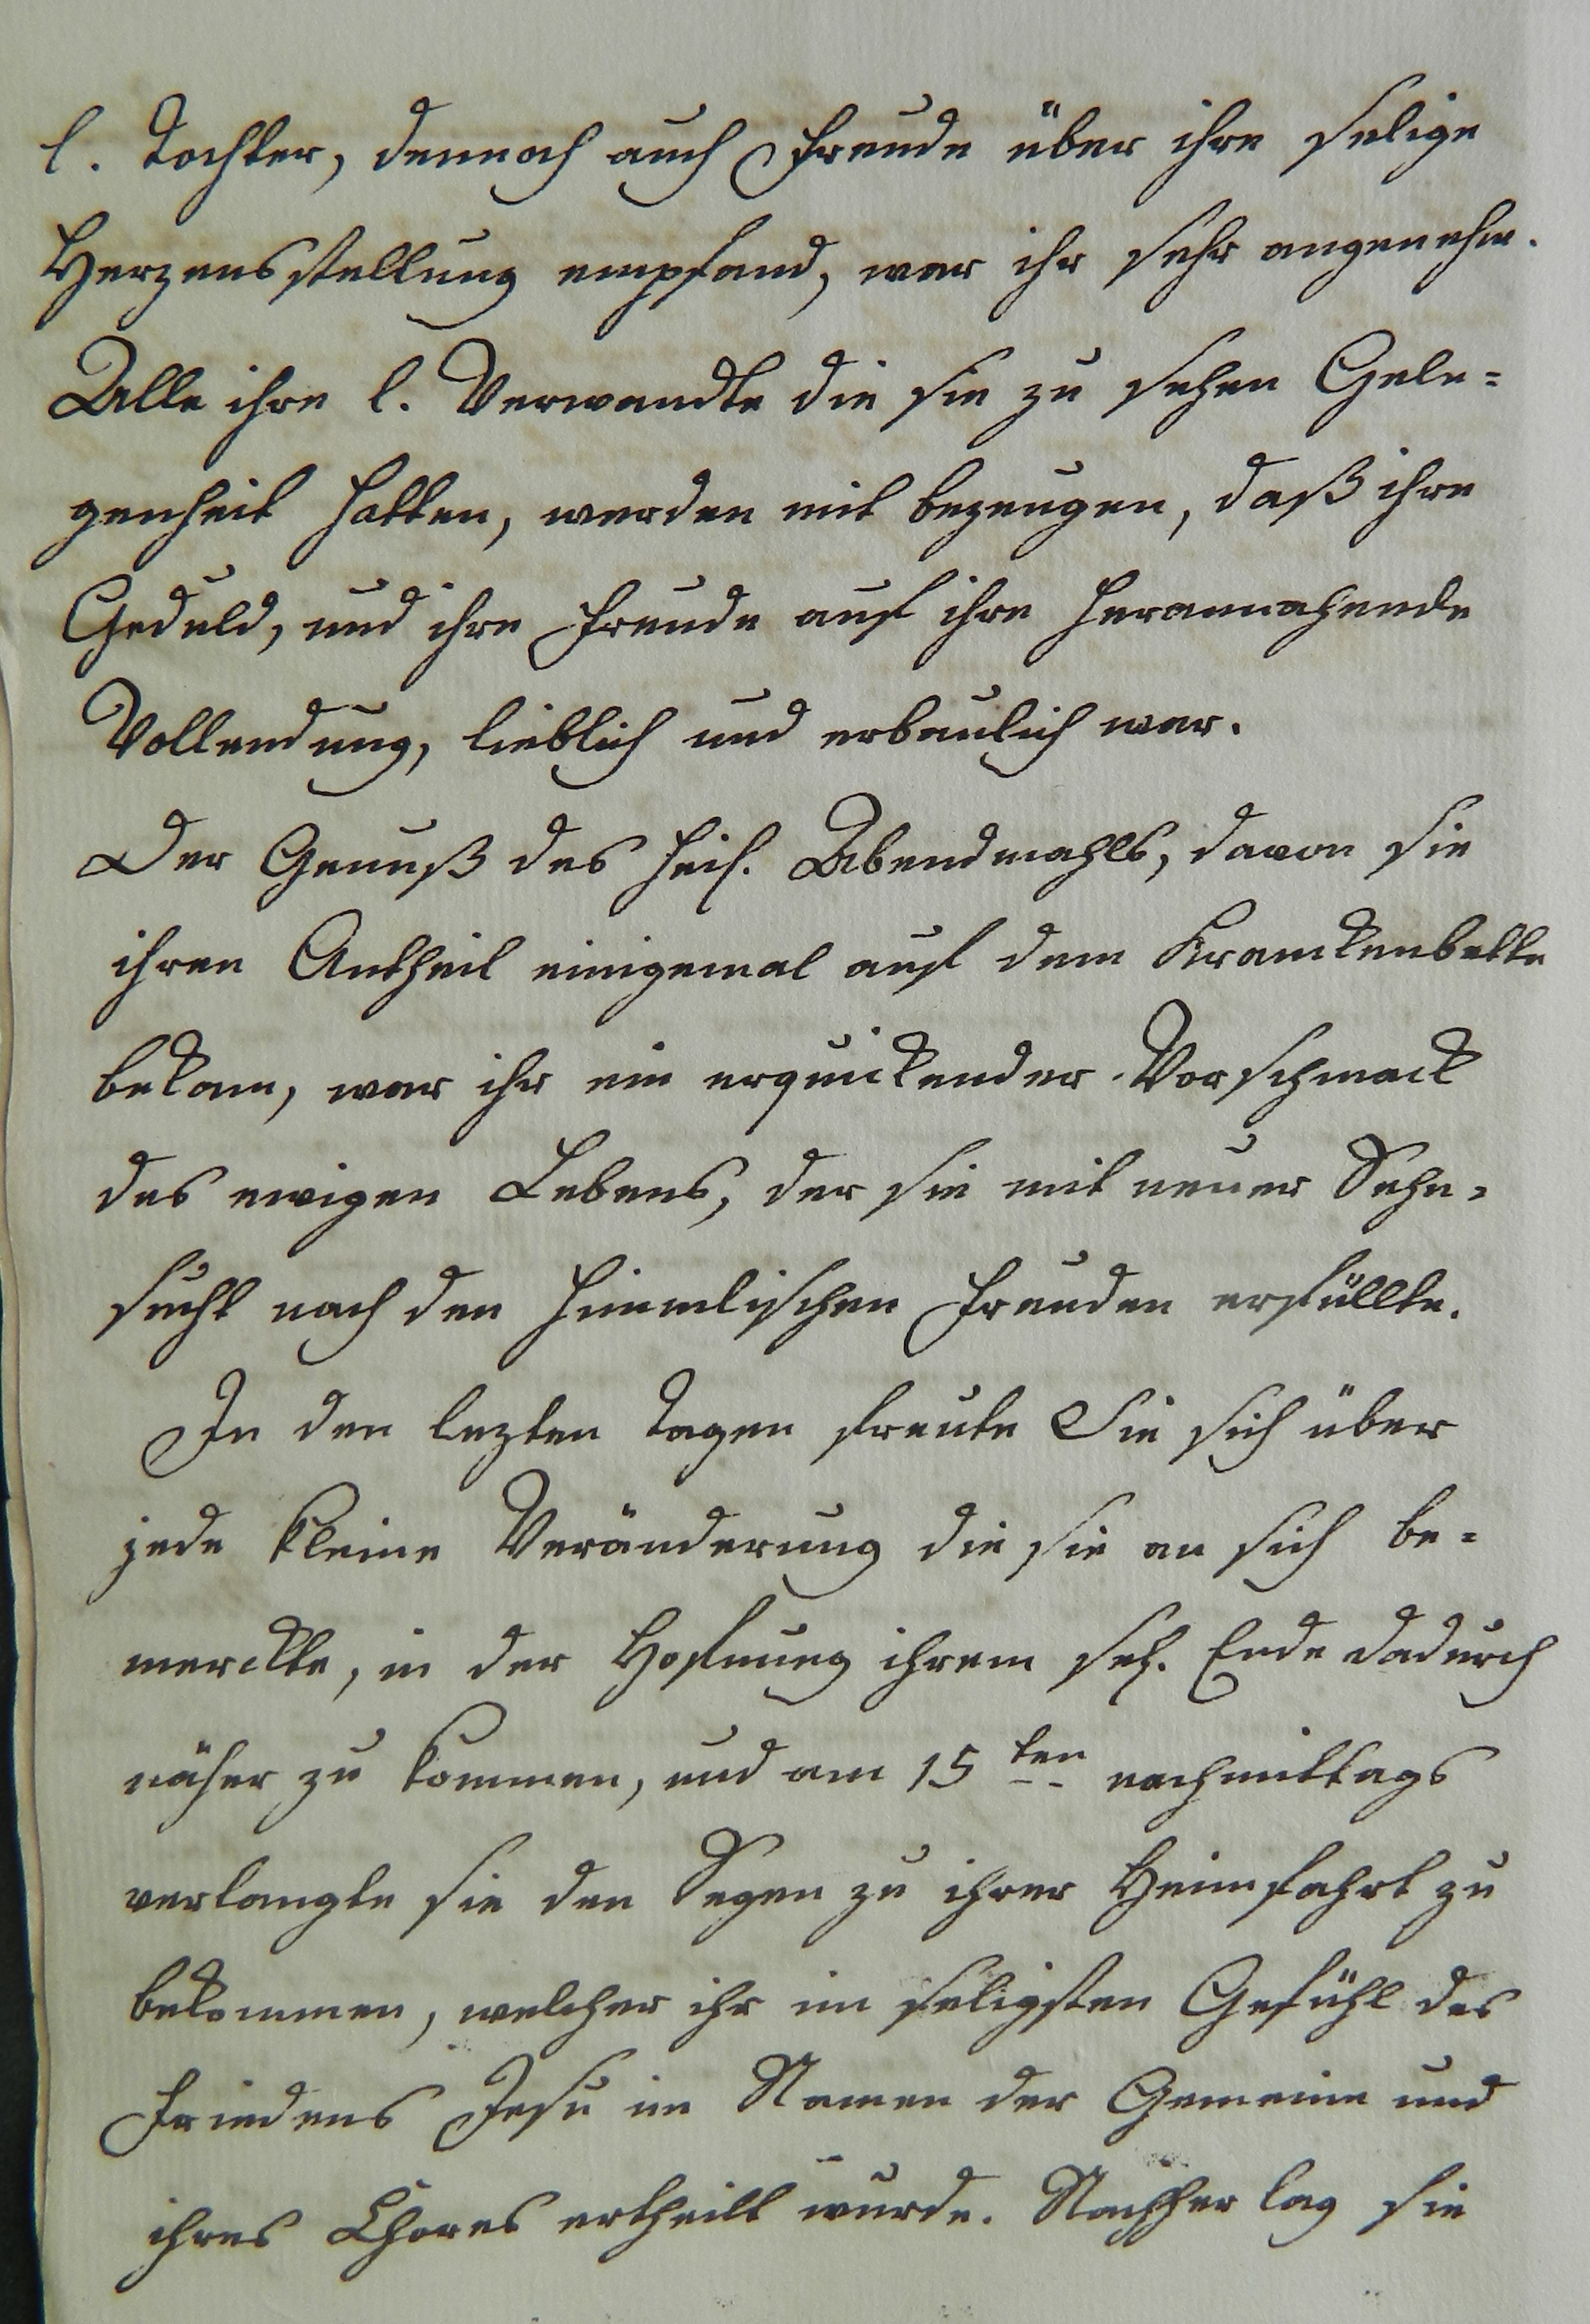 l. Tochter, dennoch auch Freude über ihre selige
Herzensstellung empfand, war ihr sehr angenehm.
Alle ihre l. Verwandte die sie zu sehen Gele=
genheit hatten, werden mit bezeugen, daß ihre
Geduld, und ihre Freude auf ihre herannahende
Vollendung, lieblich und erbaulich war.
Der Genuß des heil. Abendmahls, davon sie
ihren Antheil einigemal auf dem Kranckenbette
bekam, war ihr ein erquickender Vorschmack
des ewigen Lebens, der sie mit neuer Sehn=
sucht nach den himmlischen Freuden erfüllte.
In den lezten Tagen freute Sie sich über
jede kleine Veränderung die sie an sich be=
merckte, in der Hofnung ihrem sel. Ende dadurch
näher zu kommen, und am 15ten nachmittags
verlangte sie den Segen zu ihrer Heimfahrt zu
bekommen, welcher ihr im seligsten Gefühl des
Friedens Jesu im Namen der Gemeine und
ihres Chores ertheilt wurde. Nachher lag sie